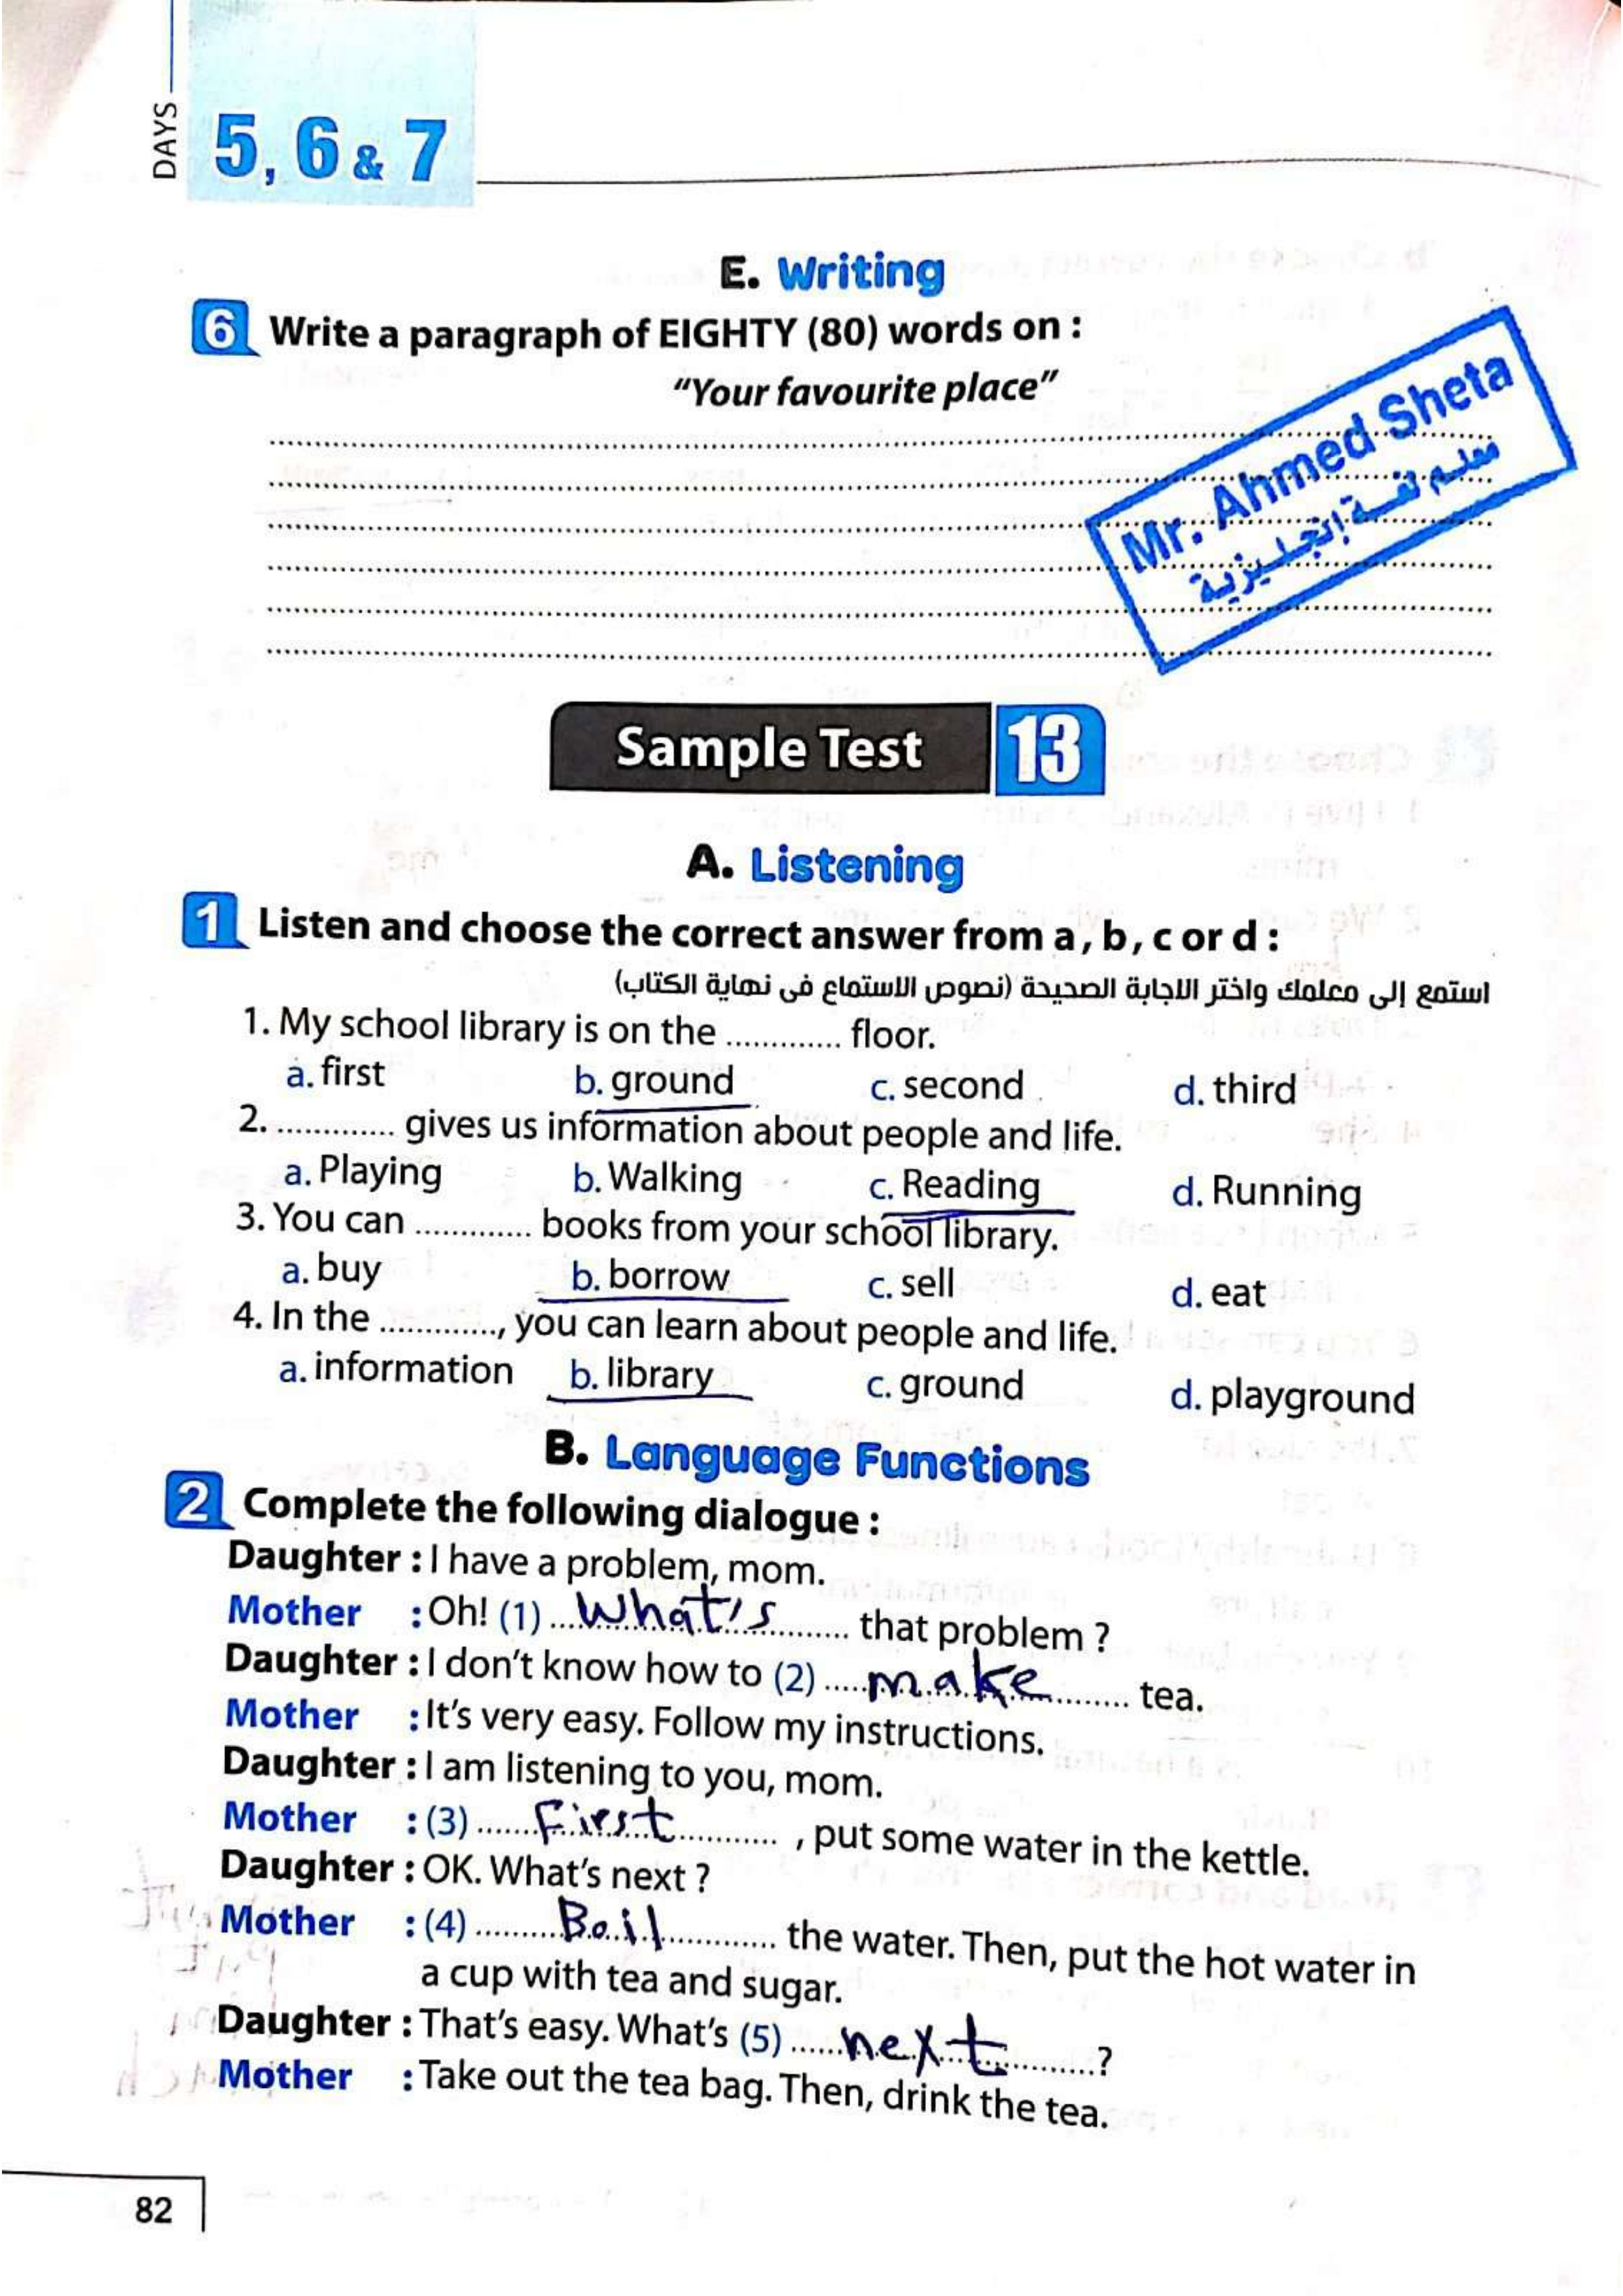 DAYS
5, 6 & 7
E. Writing
6 Write a paragraph of EIGHTY (80) words on :
"Your favourite place"
Mr. Ahmed Sheta
معلم لغة إنجليزية
Sample Test 13
A. Listening
1 Listen and choose the correct answer from a, b, c or d :
استمع إلى معلمك واختر الاجابة الصحيحة (نصوص الاستماع فى نهاية الكتاب)
1. My school library is on the ............. floor.
a. first b. ground c. second d. third
2. ............. gives us information about people and life.
a. Playing b. Walking c. Reading d. Running
3. You can ............. books from your school library.
a. buy b. borrow c. sell d. eat
4. In the ............., you can learn about people and life.
a. information b. library c. ground d. playground
B. Language Functions
2 Complete the following dialogue :
Daughter : I have a problem, mom.
Mother : Oh! (1) ... What's ... that problem ?
Daughter : I don't know how to (2) ... make ... tea.
Mother : It's very easy. Follow my instructions.
Daughter : I am listening to you, mom.
Mother : (3) ... First ... , put some water in the kettle.
Daughter : OK. What's next ?
Mother : (4) ... Boil ... the water. Then, put the hot water in
a cup with tea and sugar.
Daughter : That's easy. What's (5) ... next ... ?
Mother : Take out the tea bag. Then, drink the tea.
82